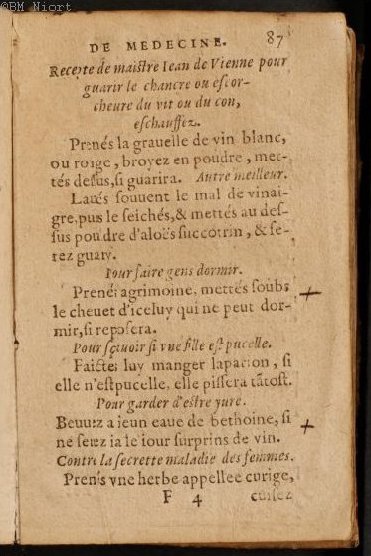 ©BM Niort
87
DE MEDECINE.
Recepte de maistre Iean de Vienne pour
guarir le chancre ou escor-
cheure du vit ou du con,
eschauffez.
Prenés la grauelle de vin blanc,
ou rouge, broyez en poudre, met-
tés dessus, si guarira. Autre meilleur.
Laués souuent le mal de vinai-
gre, pus le seichés, & mettés au des-
sus poudre d'aloés succotrin, & se-
rez guary.
Pour faire gens dormir.
Prenés agrimoine, mettés soubs
le cheuet d'iceluy qui ne peut dor-
mir, si reposera.
Pour sçauoir si vne fille est pucelle.
Faictes luy manger laparion, si
elle n'est pucelle, elle pissera tãtost.
Pour garder d'estre yure.
Beuuez a ieun eaue de bethoine, si
ne serez ia le iour surprins de vin.
Contre la secrette maladie des femmes.
Prenés vne herbe appellee curige,
F 4
cuisez